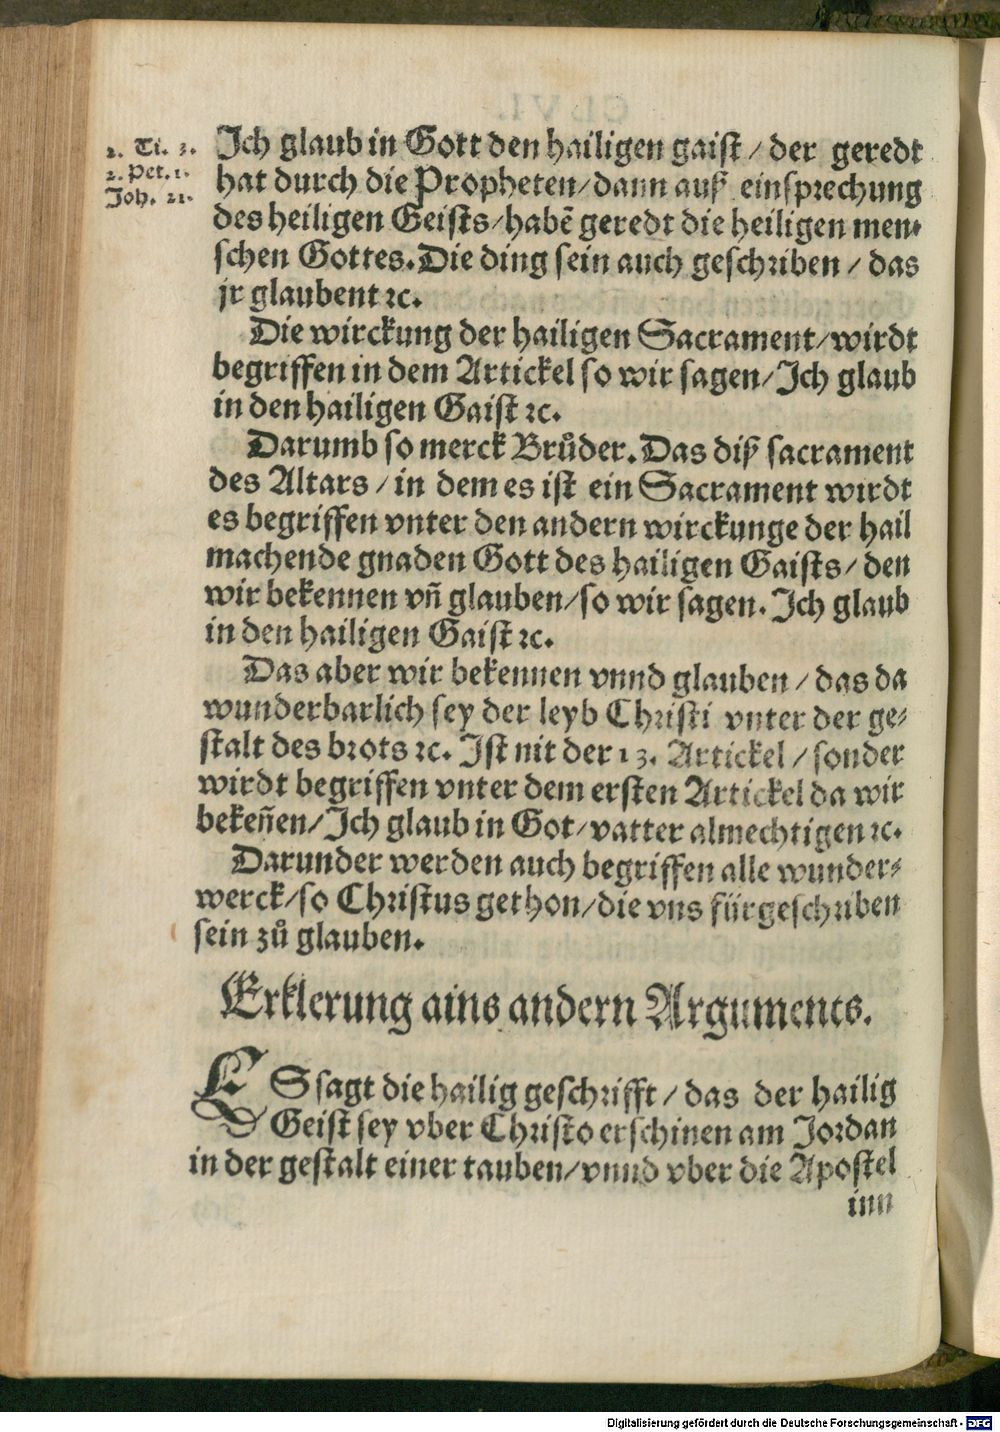 2. Ti. 3.
2. Pet. 1.
Joh. 21.
Ich glaub in Gott den hailigen gaist / der geredt
hat durch die Propheten/dann auß einsprechung
des heiligen Geists/habẽ geredt die heiligen men-
schen Gottes. Die ding sein auch geschriben / das
jr glaubent ꝛc.
Die wirckung der hailigen Sacrament/wirdt
begriffen in dem Artickel so wir sagen/Ich glaub
in den hailigen Gaist ꝛc.
Darumb so merck Brůder. Das diß sacrament
des Altars / in dem es ist ein Sacrament wirdt
es begriffen vnter den andern wirckunge der hail
machende gnaden Gott des hailigen Gaists/ den
wir bekennen vñ glauben/so wir sagen. Ich glaub
in den hailigen Gaist ꝛc.
Das aber wir bekennen vnnd glauben / das da
wunderbarlich sey der leyb Christi vnter der ge-
stalt des brots ꝛc. Ist nit der 13. Artickel / sonder
wirdt begriffen vnter dem ersten Artickel da wir
bekeñen/Ich glaub in Got/vatter almechtigen ꝛc.
Darunder werden auch begriffen alle wunder-
werck/so Christus gethon/die vns fürgeschriben
sein zů glauben.
Erklerung ains andern Arguments.
ES sagt die hailig geschrifft / das der hailig
Geist sey vber Christo erschinen am Jordan
in der gestalt einer tauben/vnnd vber die Apostel
inn
Digitalisierung gefördert durch die Deutsche Forschungsgemeinschaft - DFG